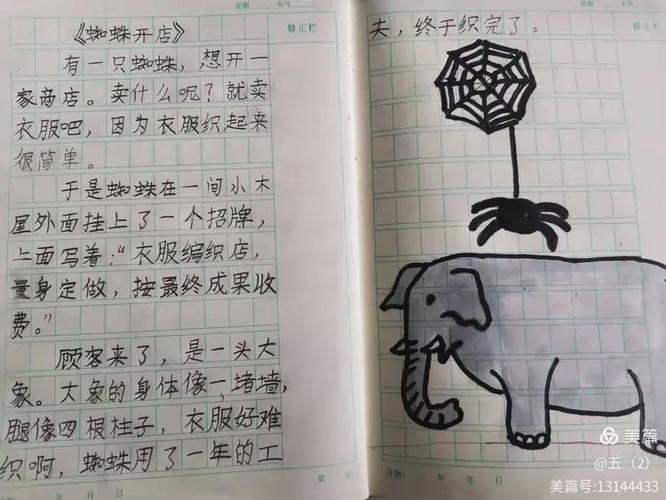 星期
天气
《蜘蛛开店》
修正栏
有一只蜘蛛，想开一
家商店。卖什么呢？就卖
衣服吧，因为衣服织起来
很简单。
于是蜘蛛在一间小木
屋外面挂上了一个招牌，
上面写着："衣服编织店，
量身定做，按最终成果收
费。"
顾客来了，是一头大
象。大象的身体像一堵墙，
腿像四根柱子，衣服好难
织啊，蜘蛛用了一年的工
年 月 日
第
星期
天气
修正栏
夫，终于织完了。
年 月 日
美篇
@五（2）
美篇号:13144433